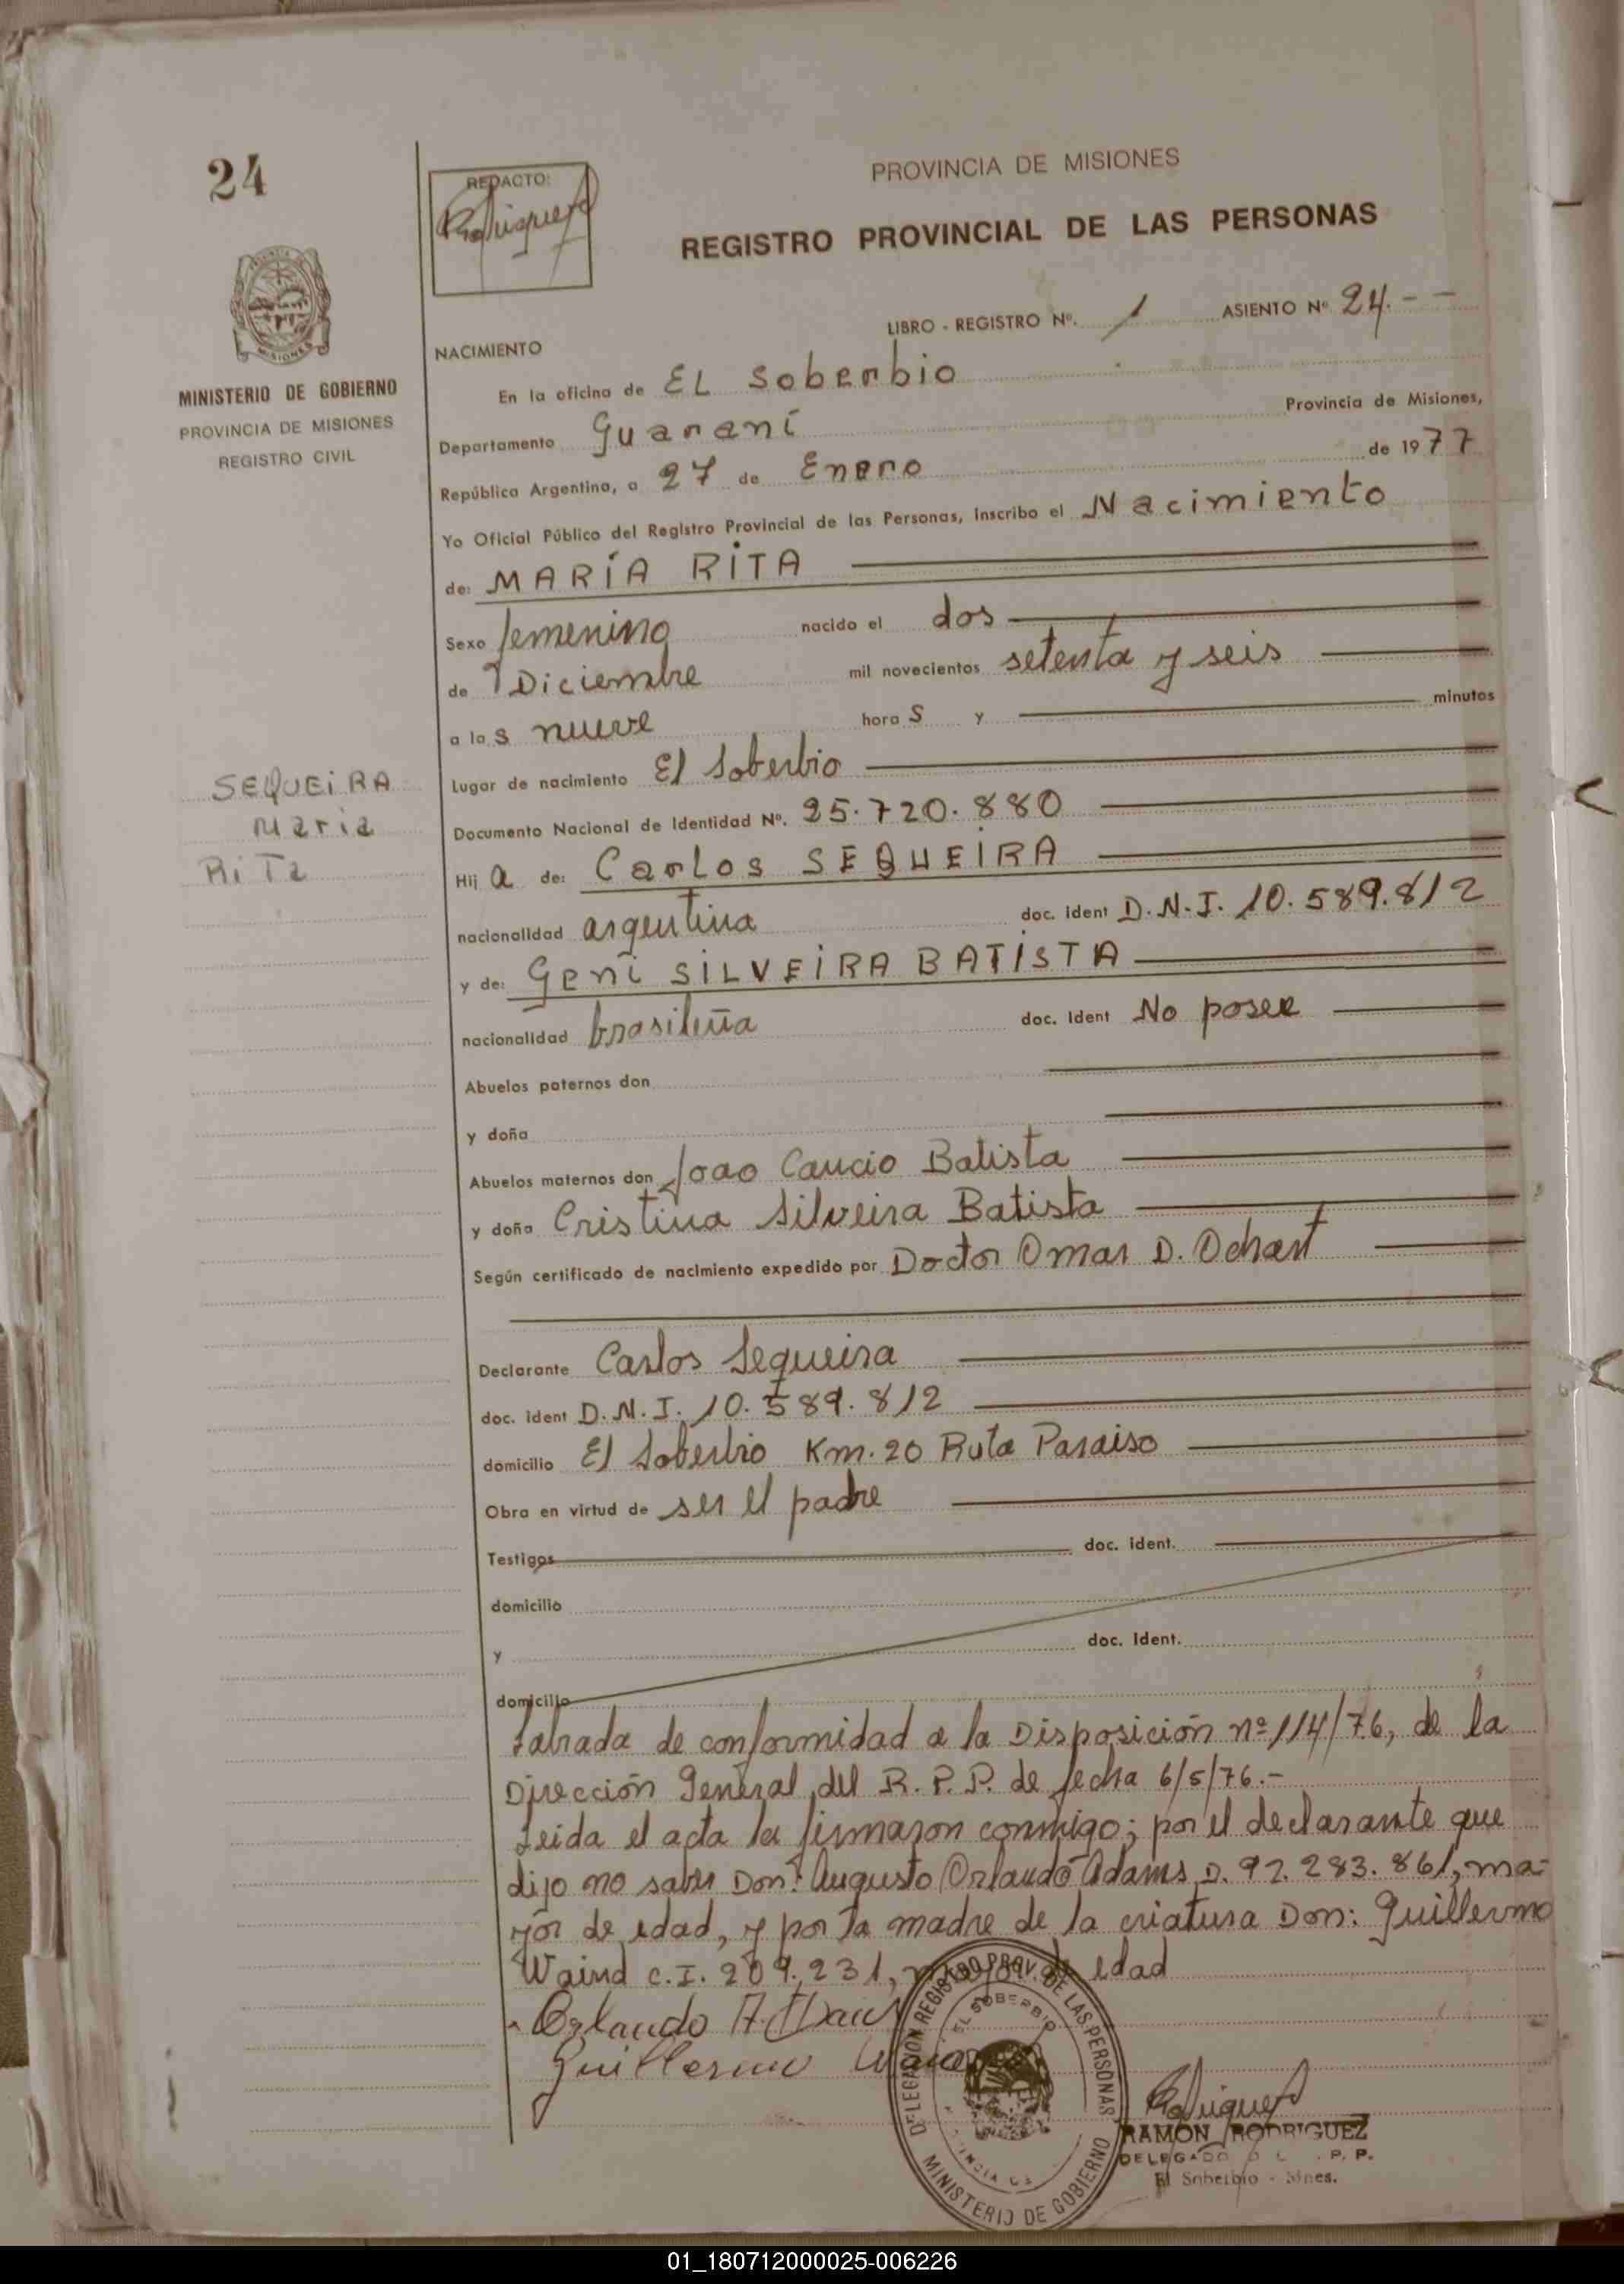 24
REDACTO:
PROVINCIA DE MISIONES
REGISTRO PROVINCIAL DE LAS PERSONAS
LIBRO - REGISTRO Nº. 1 ASIENTO Nº 24.- -
NACIMIENTO
MINISTERIO DE GOBIERNO
PROVINCIA DE MISIONES
REGISTRO CIVIL
En la oficina de EL Soberbio
Departamento Guaraní Provincia de Misiones,
República Argentina, a 27 de Enero de 1977
Yo Oficial Público del Registro Provincial de las Personas, inscribo el Nacimiento
de: MARÍA RITA
Sexo femenino nacido el dos
de Diciembre mil novecientos setenta y seis
a las nueve horas y minutos
Lugar de nacimiento El Soberbio
SEQUEIRA
Maria
RiTa
Documento Nacional de Identidad Nº. 25.720.880
Hija de: Carlos SEQUEIRA
nacionalidad argentina doc. ident D.N.I. 10.589.812
y de: Geni SILVEIRA BATISTA
nacionalidad brasileña doc. Ident No posee
Abuelos paternos don
y doña
Abuelos maternos don Joao Caucio Batista
y doña Cristina Silveira Batista
Según certificado de nacimiento expedido por Doctor Omar D. Ochart
Declarante Carlos Sequeira
doc. ident D.N.I. 10.589.812
domicilio El Soberbio Km. 20 Ruta Paraiso
Obra en virtud de ser el padre
Testigos doc. ident.
domicilio
y doc. Ident.
domicilio
Labrada de conformidad a la Disposición nº 114/76, de la
Dirección General del R.P.P. de fecha 6/5/76.-
Leida el acta la firmaron conmigo; por el declarante que
dijo no saber Don: Augusto Orlando Adams D. 92.283.861, ma-
yor de edad, y por la madre de la criatura Don: Guillermo
Waind C.I. 209.231, mayor de edad
Orlando A.
Guillermo
DELEGACION REGISTRO PROV. DE LAS PERSONAS
EL SOBERBIO
MINISTERIO DE GOBIERNO
RAMON RODRIGUEZ
DELEGADO P. P.
El Soberbio - Sines.
01_180712000025-006226